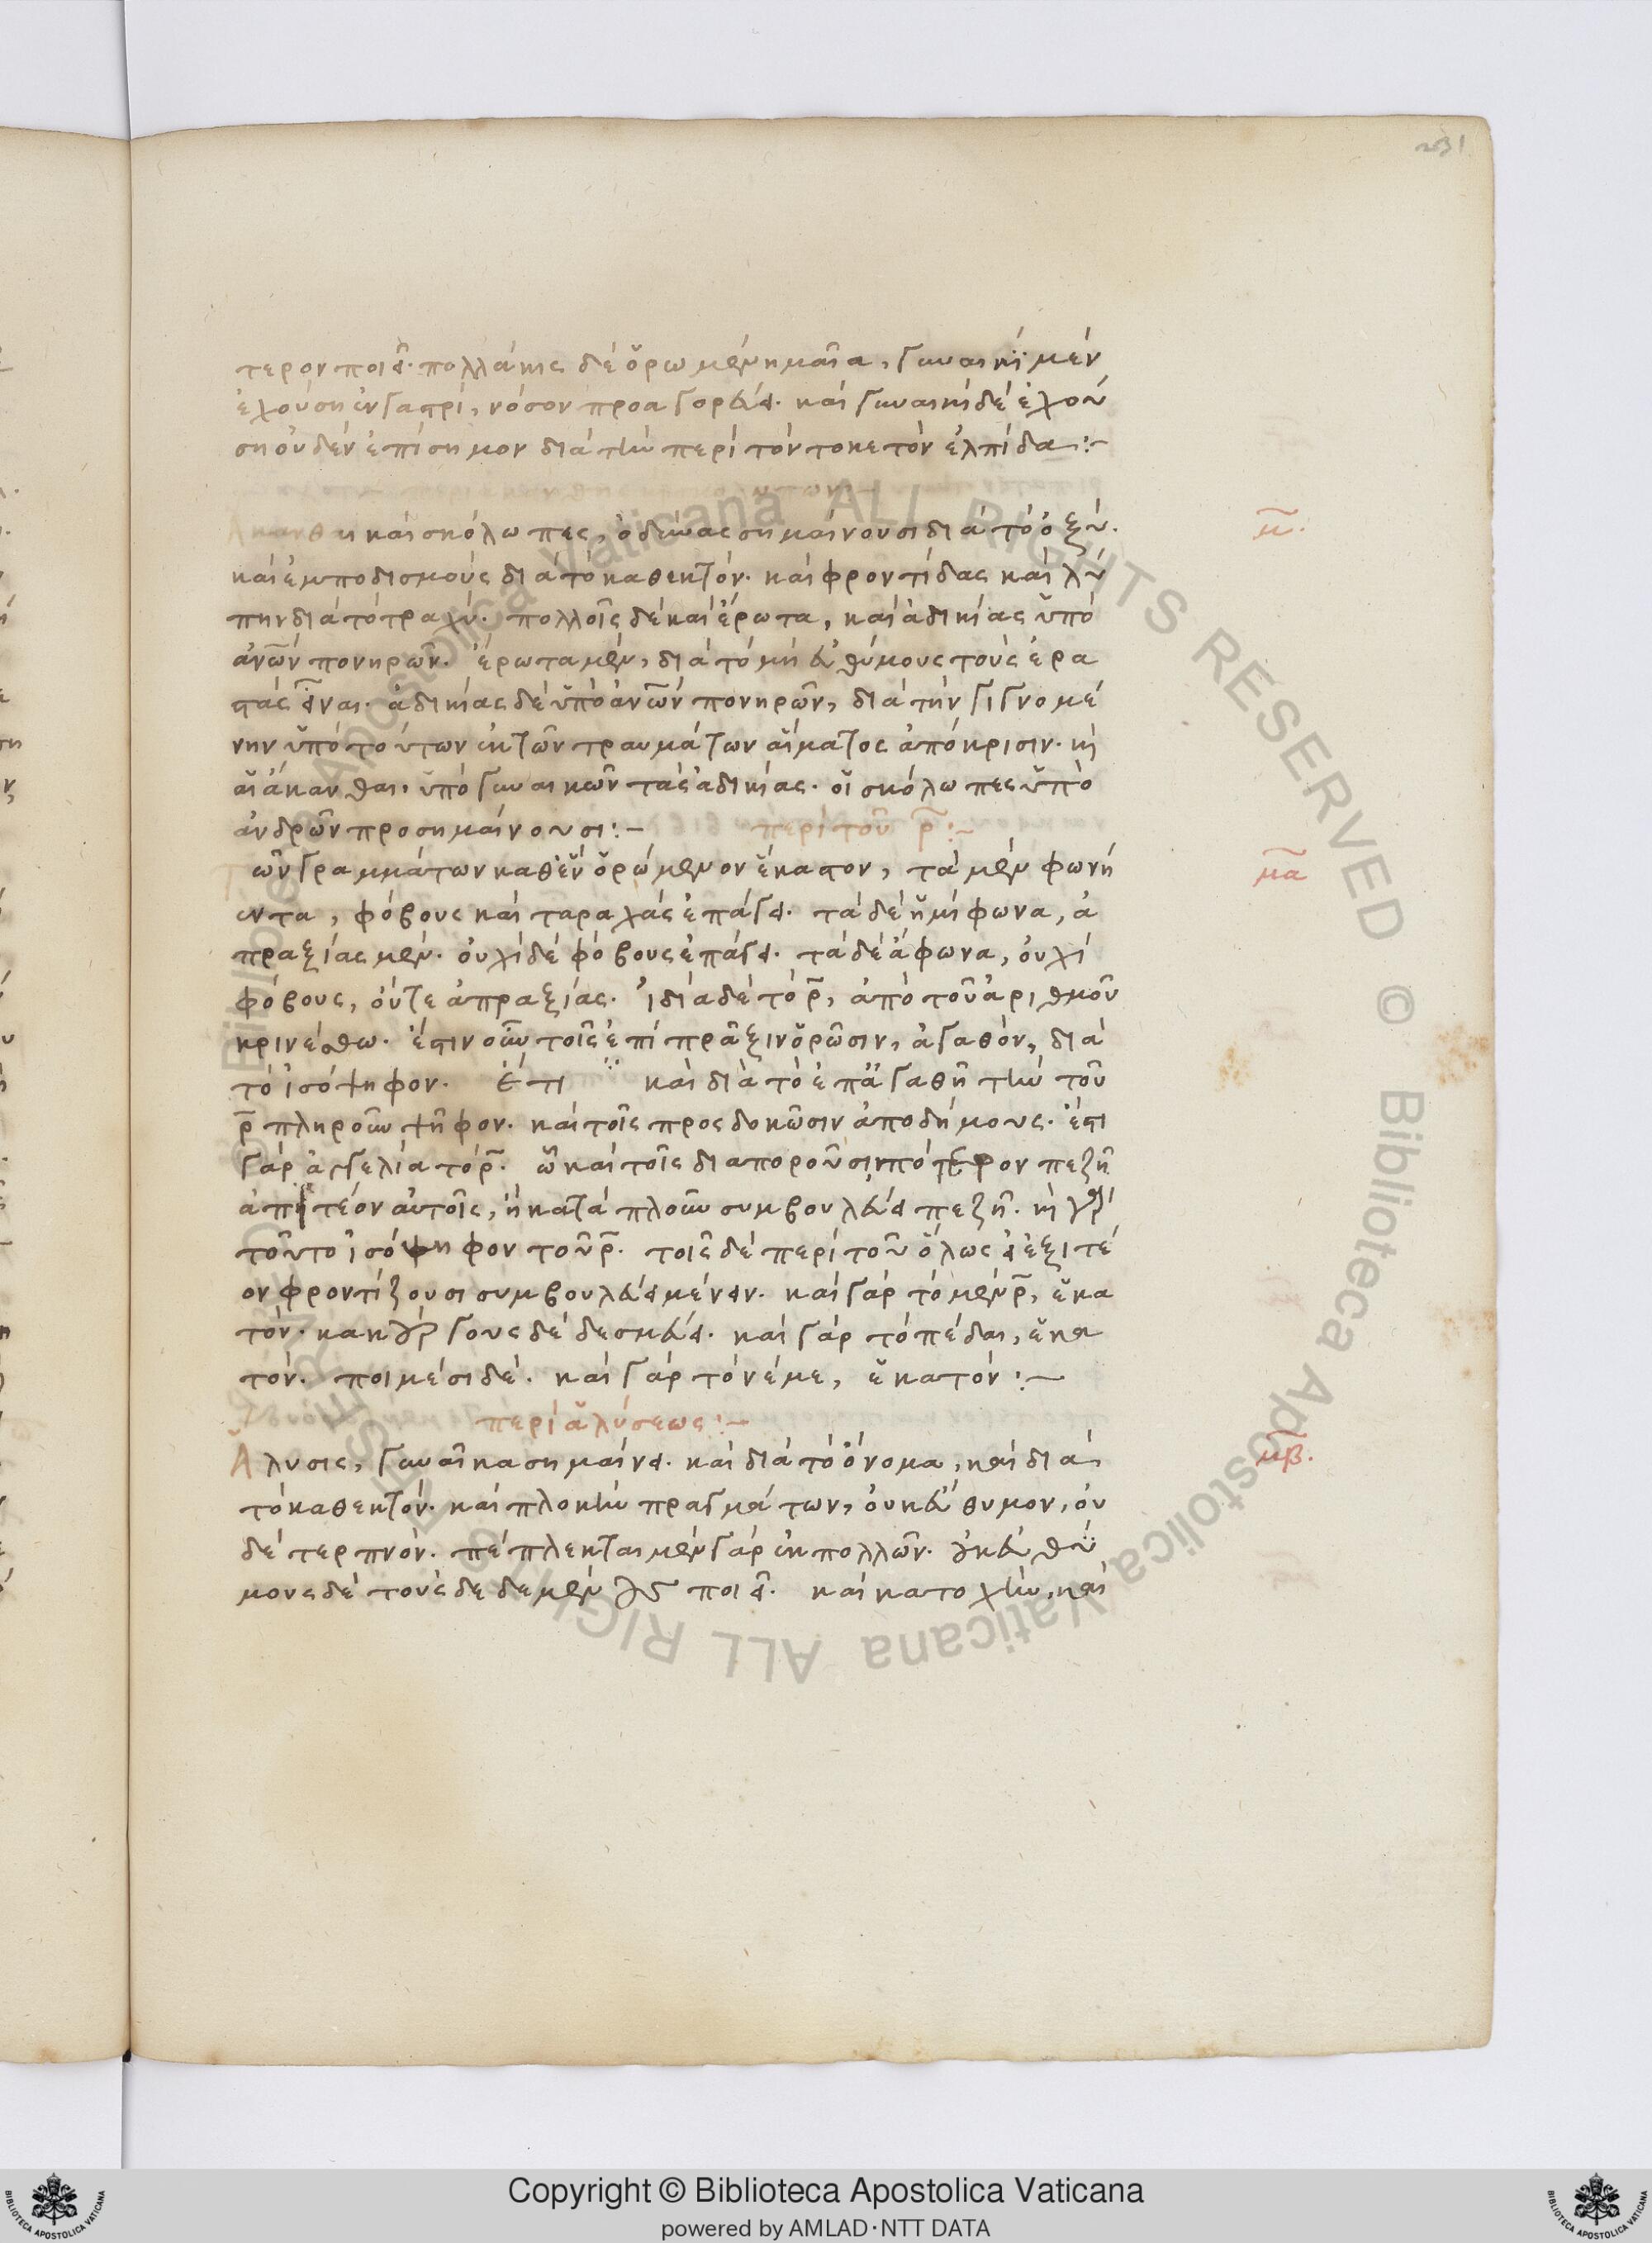 231
τερον ποιεῖ. πολλάκις δὲ ὁρωμένη μαῖα, γυναικὶ μὲν
ἐχούση ἐν γαστρὶ, νόσον προαγορεύει. καὶ γυναικὶ δὲ ἐχού
ση οὐδὲν ἐπίσημον διὰ τὴν περὶ τὸν τοκετὸν ἐλπίδα:~
Ἄκανθαι καὶ σκόλωπες, ὀδύνας σημαίνουσι διὰ τὸ ὀξύ. μ̅.
καὶ ἐμποδισμοὺς διὰ τὸ καθεκτόν. καὶ φροντίδας καὶ λύ
πην διὰ τὸ τραχύ. πολλοῖς δὲ καὶ ἔρωτα, καὶ ἀδικίας ὑπὸ
ἀνῶν πονηρῶν. ἔρωτα μὲν, διὰ τὸ μὴ εὐθύμους τοὺς ἐρα
στὰς εἶναι. ἀδικίας δὲ ὑπὸ ἀνῶν πονηρῶν, διὰ τὴν γιγνομέ
νην ὑπὸ τούτων ἐκ τῶν τραυμάτων αἵματος ἀπόκρισιν. κὶ
αἱ ἄκανθαι, ὑπὸ γυναικῶν τὰς ἀδικίας. οἱ σκόλωπες ὑπὸ
ἀνδρῶν προσημαίνουσι:~ περὶ τοῦ ρ̅:~
Τῶν γραμμάτων καθ' ἓν ὁρώμενον ἕκαστον, τὰ μὲν φωνή μ̅α
εντα, φόβους καὶ ταραχὰς ἐπάγει. τὰ δὲ ἡμίφωνα, ἀ
πραξίας μὲν. οὐχὶ δὲ φόβους ἐπάγει. τὰ δὲ ἄφωνα, οὐχὶ
φόβους, οὔτε ἀπραξίας. ἰδία δὲ τὸ ρ̅, ἀπὸ τοῦ ἀριθμοῦ
κρινέσθω. ἔστιν οὖν τοῖς ἐπὶ πρᾶξιν ὁρῶσιν, ἀγαθὸν, διὰ
τὸ ἰσόψηφον. ἔτι καὶ διὰ τὸ ἐπ' ἀγαθῆ τὴν τοῦ
ρ̅ πληροῦν ψῆφον. καὶ τοῖς προσδοκῶσιν ἀποδήμους. ἔστι
γὰρ ἀγγελία τὸ ρ̅. ὧ καὶ τοῖς διαποροῦσιν πότερον πεζῆ
ἀπιτέον αὐτοῖς, ἢ κατὰ πλοῦν συμβουλεύει πεζῆ. κὶ γὰρ
τοῦτο ἰσόψηφον τοῦ ρ̅. τοῖς δὲ περὶ τοῦ ὅλως εἰ ἐξιτέ
ον φροντίζουσι συμβουλεύει μένειν. καὶ γὰρ τὸ μὲν ρ̅, ἑκα
τόν. κακούργους δὲ δεσμεύει. καὶ γὰρ τὸ πέδαι, ἑκα
τόν. ποιμέσι δέ. καὶ γὰρ τὸ νέμε, ἑκατόν:~
περὶ ἁλύσεως:~
Ἅλυσις, γυναῖκα σημαίνει. καὶ διὰ τὸ ὄνομα, καὶ διὰ μ̅β.
τὸ καθεκτόν. καὶ πλοκὴν πραγμάτων, οὐκ εὔθυμον, οὐ
δὲ τερπνόν. πέπλεκται μὲν γὰρ ἐκ πολλῶν. οὐκ εὐθύ
μους δὲ τοὺς δεδεμένους ποιεῖ. καὶ κατοχὴν, καὶ
Copyright © Biblioteca Apostolica Vaticana
powered by AMLAD·NTT DATA